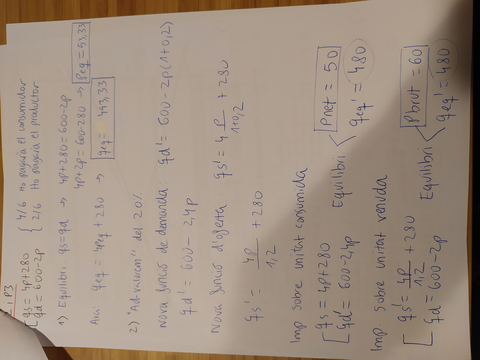 P3
qs = 4p+280 { 4/6 Ho pagaria el consumidor
qd = 600-2p { 2/6 Ho pagaria el productor
1) Equilibri qs=qd → 4p+280=600-2p
4p+2p = 600-280 → peq = 53,33
Així qeq = 4peq + 280 → qeq = 493,33
2) "Ad-valorem" del 20%
Nova funció de demanda qd' = 600-2p(1+0,2)
qd' = 600-2,4p
Nova funció d'oferta qs' = 4 p/1+0,2 + 280
qs' = 4p/1,2 + 280
Imp sobre unitat consumida
qs = 4p+280 Equilibri pnet = 50
qd' = 600-2,4p qeq' = 480
Imp sobre unitat venuda
qs' = 4p/1,2 + 280 Equilibri pbrut = 60
qd = 600-2p qeq' = 480